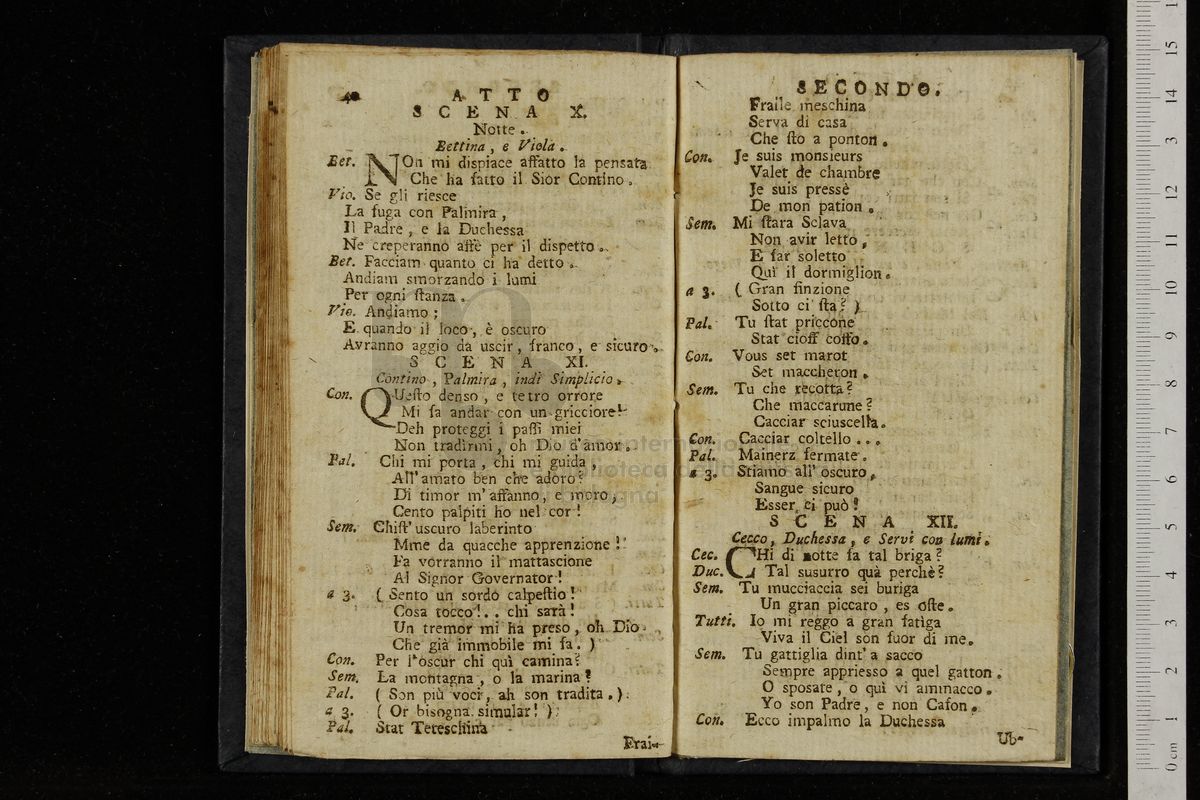 40 ATTO
SCENA X.
Notte.
Bettina, e Viola.
Bet. NOn mi dispiace affatto la pensata
Che ha fatto il Sior Contino.
Vio. Se gli riesce
La fuga con Palmira,
Il Padre, e la Duchessa
Ne creperanno affè per il dispetto.
Bet. Facciam quanto ci ha detto.
Andiam smorzando i lumi
Per ogni ſtanza.
Vio. Andiamo:
E quando il loco, è oscuro
Avranno aggio da uscir, franco, e sicuro.
SCENA XI.
Contino, Palmira, indi Simplicio.
Con. QUeſto denso, e tetro orrore
Mi fa andar con un gricciore!
Deh proteggi i paſſi miei
Non tradirmi, oh Dio d'amor.
Pal. Chi mi porta, chi mi guida,
All'amato ben che adoro?
Di timor m'affanno, e moro,
Cento palpiti ho nel cor!
Sem. Chiſt'uscuro laberinto
Mme da quacche apprenzione!
Fa vorranno il mattascione
Al Signor Governator!
a 3. ( Sento un sordo calpeſtio!
Cosa tocco!.. chi sarà!
Un tremor mi ha preso, oh Dio
Che già immobile mi fa. )
Con. Per l'oscur chi quì camina?
Sem. La montagna, o la marina?
Pal. ( Son più voci, ah son tradita. )
a 3. ( Or bisogna simular! )
Pal. Stat Teteschina
Frai-
SECONDO.
Fraile meschina
Serva di casa
Che ſto a ponton.
Con. Je suis monsieurs
Valet de chambre
Je suis pressè
De mon pation.
Sem. Mi ſtara Sclava
Non avir letto,
E far soletto
Quì il dormiglion.
a 3. ( Gran finzione
Sotto ci ſta? )
Pal. Tu ſtat priccone
Stat cioff coffo.
Con. Vous set marot
Set maccheron.
Sem. Tu che recotta?
Che maccarune?
Cacciar sciuscella.
Con. Cacciar coltello...
Pal. Mainerz fermate.
a 3. Stiamo all'oscuro,
Sangue sicuro
Esser ci può!
SCENA XII.
Cecco, Duchessa, e Servi con lumi.
Cec. CHi di notte fa tal briga?
Duc. Tal susurro quà perchè?
Sem. Tu mucciaccia sei buriga
Un gran piccaro, es oſte.
Tutti. Io mi reggo a gran fatiga
Viva il Ciel son fuor di me.
Sem. Tu gattiglia dint'a sacco
Sempre appriesso a quel gatton.
O sposate, o quì vi ammacco.
Yo son Padre, e non Cafon.
Con. Ecco impalmo la Duchessa
Ub-